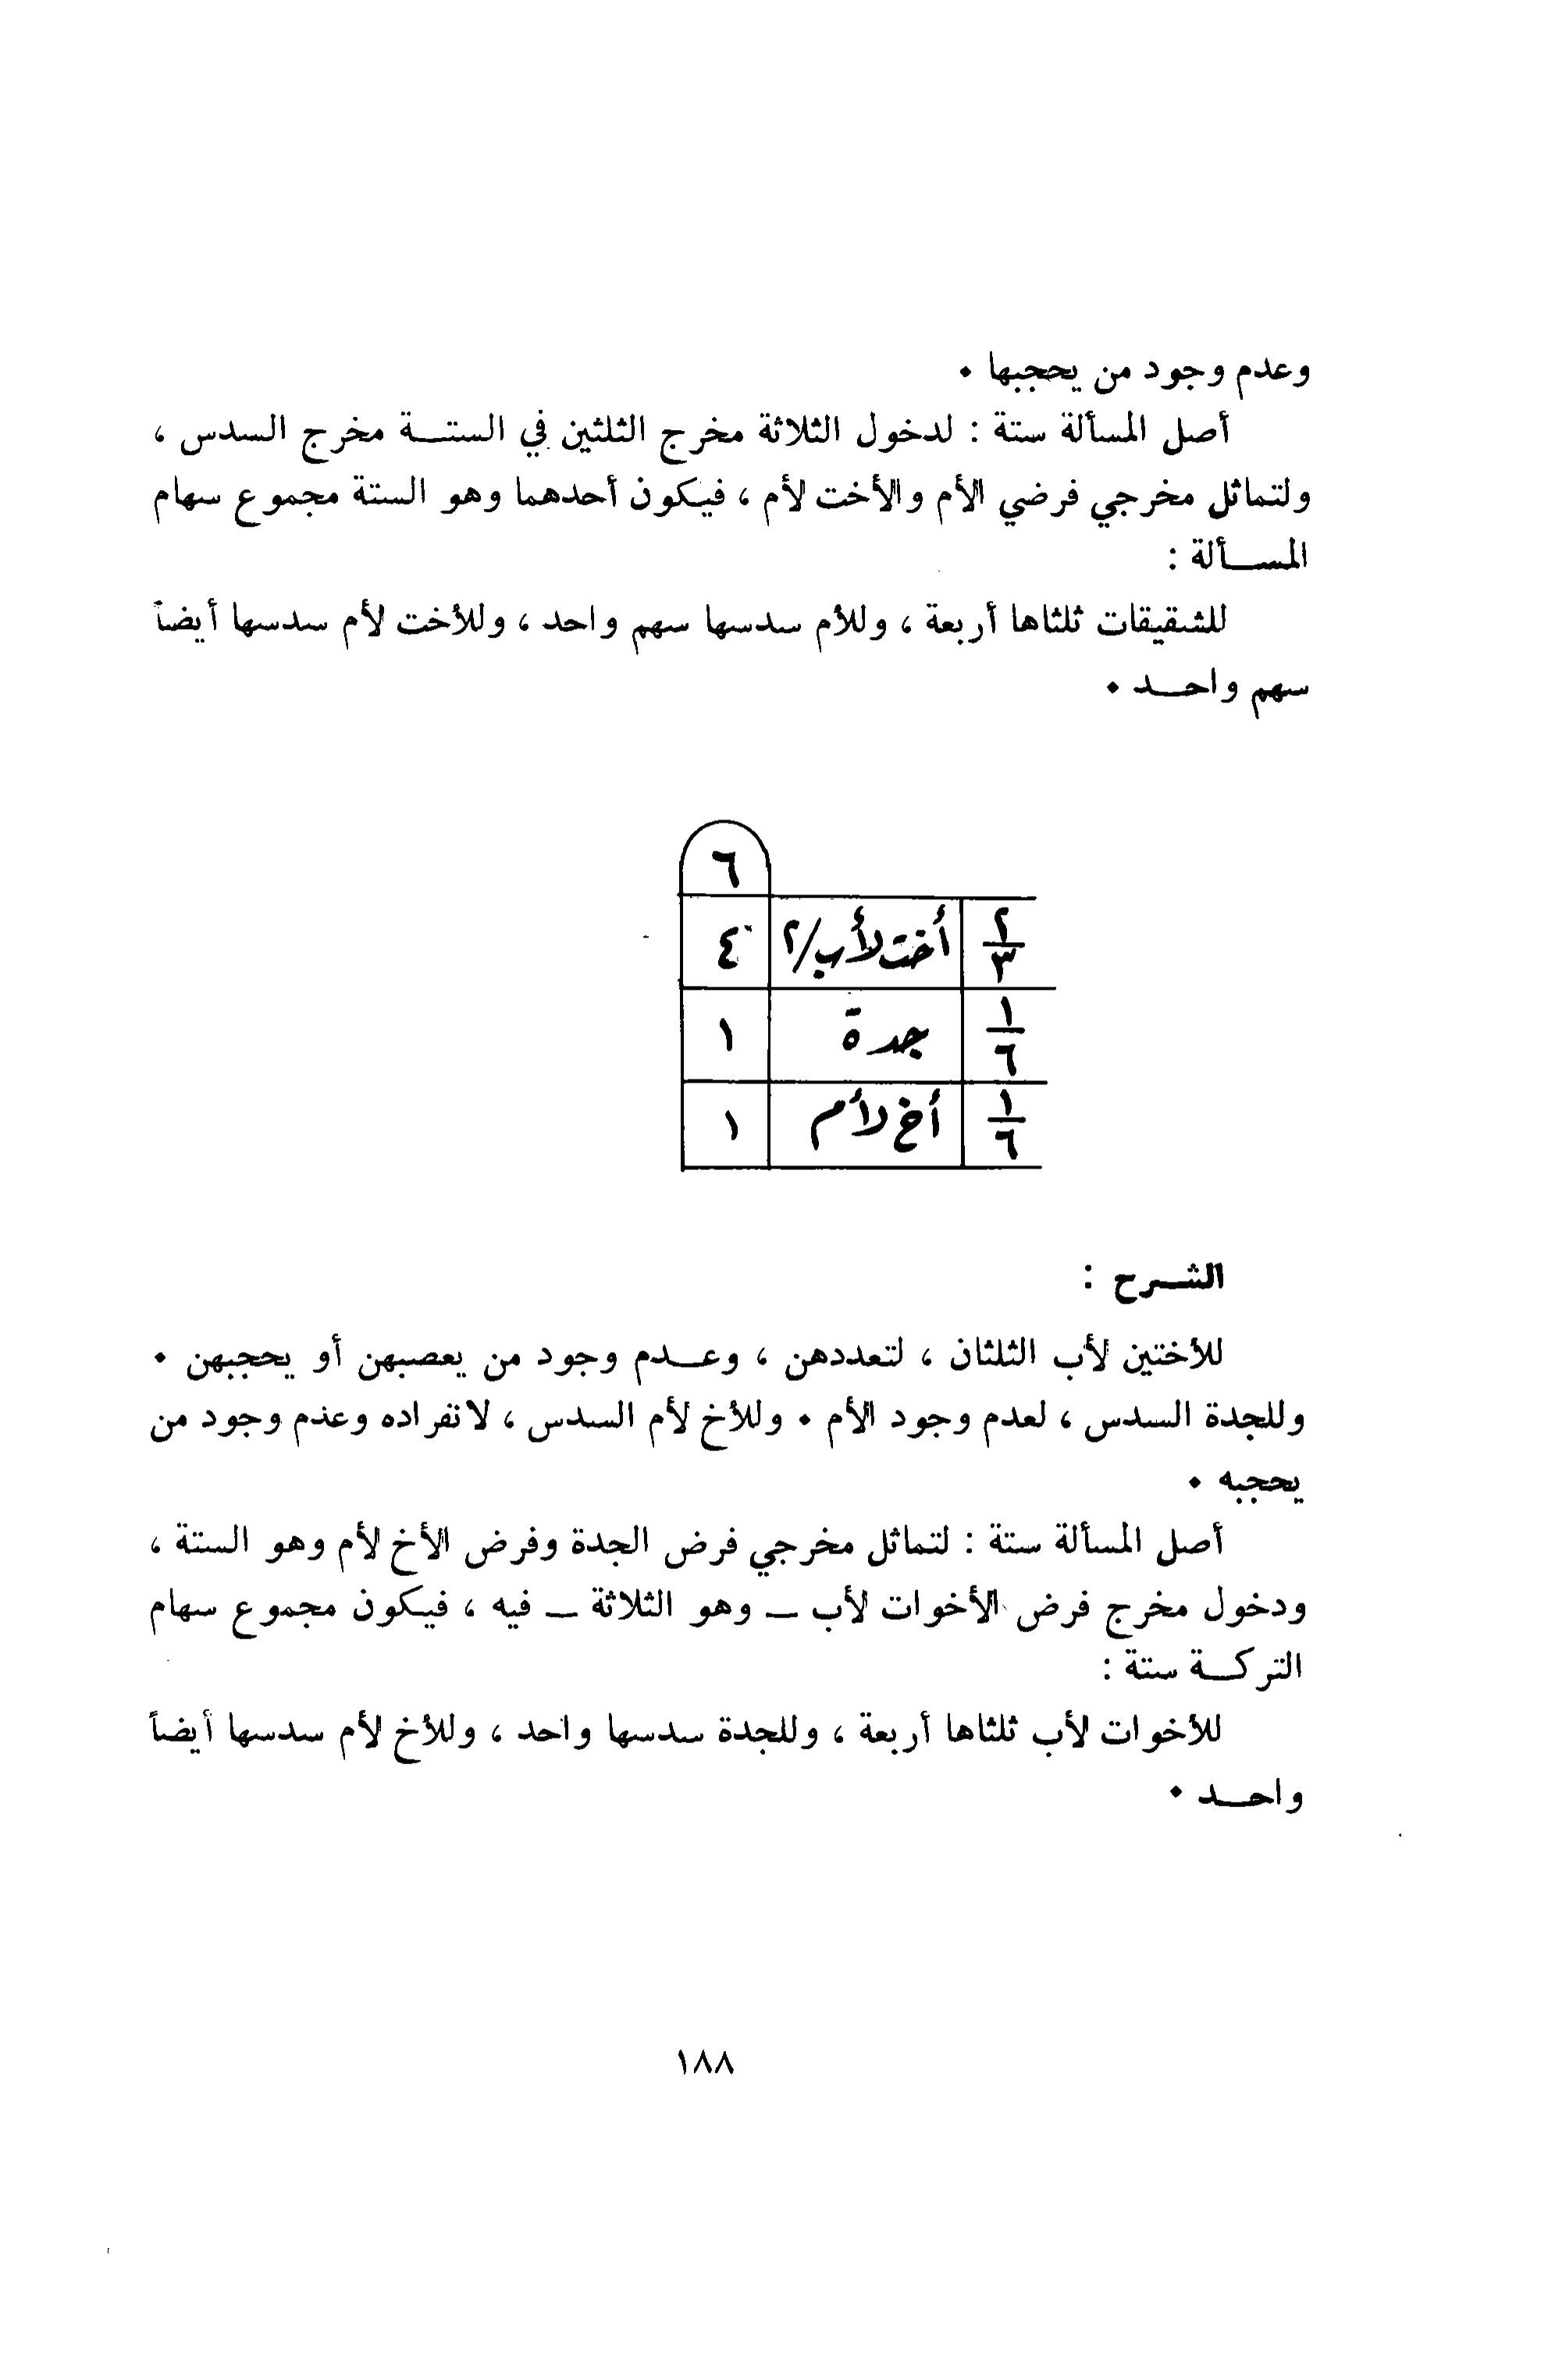 وعدم وجود من يحجبها ٠
أصل المسألة ستة : لدخول الثلاثة مخرج الثلثين في الستــة مخرج السدس ،
ولتماثل مخرجي فرضي الأم والأخت لأم ، فيكون أحدهما وهو الستة مجموع سهام
المســألة :
للشقيقات ثلثاها أربعة ، وللأم سدسها سهم واحد ، وللأخت لأم سدسها أيضاً
سهم واحــد ٠
٦
٢/٣ أخت لأب/٢ ٤
١/٦ جدة ١
١/٦ أخ لأم ١
الشــرح :
للأختين لأب الثلثان ، لتعددهن ، وعــدم وجود من يعصبهن أو يحجبهن ٠
وللجدة السدس ، لعدم وجود الأم ٠ وللأخ لأم السدس ، لانفراده وعدم وجود من
يحجبه ٠
أصل المسألة ستة : لتماثل مخرجي فرض الجدة وفرض الأخ لأم وهو الستة ،
ودخول مخرج فرض الأخوات لأب ــ وهو الثلاثة ــ فيه ، فيكون مجموع سهام
التركــة ستة :
للأخوات لأب ثلثاها أربعة ، وللجدة سدسها واحد ، وللأخ لأم سدسها أيضاً
واحــد ٠
١٨٨